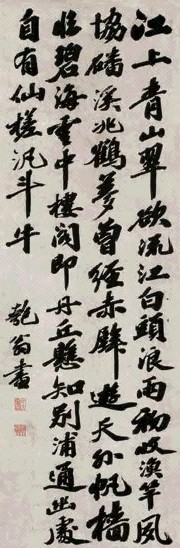 江上青山翠欲流江白頭浪雨初收漁竿風
協磻溪兆鶴夢曾經赤壁遊天外帆檣
臨碧海雲中樓閣即丹丘懸知別浦通幽處
自有仙槎汎斗牛
匏翁書